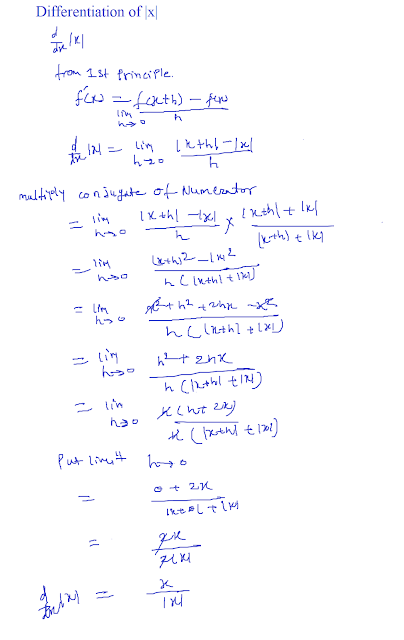 Differentiation of |x|
d/dx |x|
from 1st principle.
f'(x) = lim h→0 f(x+h) - f(x) / h
d/dx |x| = lim h→0 |x+h| - |x| / h
multiply conjugate of Numerator
= lim h→0 |x+h| - |x| / h × |x+h| + |x| / |x+h| + |x|
= lim h→0 |x+h|² - |x|² / h (|x+h| + |x|)
= lim h→0 x² + h² + 2hx - x² / h (|x+h| + |x|)
= lim h→0 h² + 2hx / h (|x+h| + |x|)
= lim h→0 h (h + 2x) / h (|x+h| + |x|)
Put limit h→0
= 0 + 2x / |x+0| + |x|
= 2x / 2|x|
d/dx |x| = x / |x|